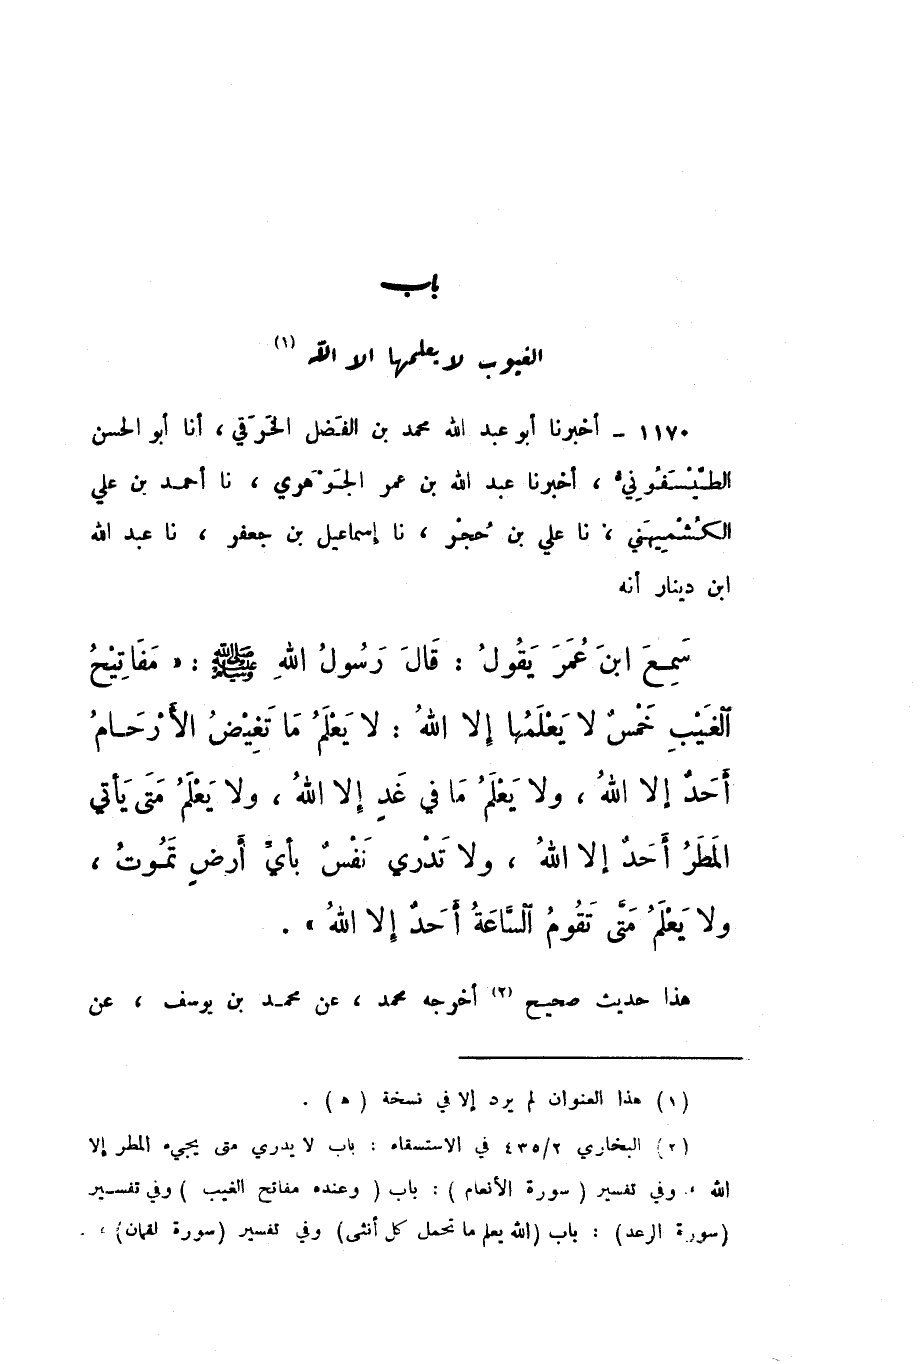 باب
الغيوب لا يعلمها الا الله (١)
١١٧٠ - أخبرنا أبو عبد الله محمد بن الفَضل الخَرَقي ، أنا أبو الحسن
الطَّيْسَفُونيُّ ، أخبرنا عبد الله بن عمر الجَوْهَري ، نا أحمد بن علي
الكُشْمِيهَني ، نا علي بن حُجْر ، نا إسماعيل بن جعفر ، نا عبد الله
ابن دينار أنه
سَمِعَ ابنَ عُمَرَ يَقُولُ : قَالَ رَسُولُ اللهِ ﷺ : « مَفَاتِيْحُ
الغَيْبِ خَمْسٌ لا يَعْلَمُها إلا اللهُ : لا يَعْلَمُ مَا تَغِيْضُ الأَرْحَامُ
أَحَدٌ إلا اللهُ ، ولا يَعْلَمُ مَا في غَدٍ إلا اللهُ ، ولا يَعْلَمُ مَتَى يَأتي
المَطَرُ أَحَدٌ إلا اللهُ ، ولا تَدْري نَفْسٌ بأيِّ أَرضٍ تَمُوتُ ،
ولا يَعْلَمُ مَتَّى تَقُومُ السَّاعَةُ أَحَدٌ إلا اللهُ » .
هذا حديث صحيح (٢) أخرجه محمد ، عن محمد بن يوسف ، عن
(١) هذا العنوان لم يرد إلا في نسخة ( ه ) .
(٢) البخاري ٤٣٥/٢ في الاستسقاء : باب لا يدري متى يجيء المطر إلا
الله ، وفي تفسير ( سورة الأنعام ) : باب ( وعنده مفاتح الغيب ) وفي تفسير
(سورة الرعد) : باب (الله يعلم ما تحمل كل أنثى) وفي تفسير (سورة لقمان) ، .